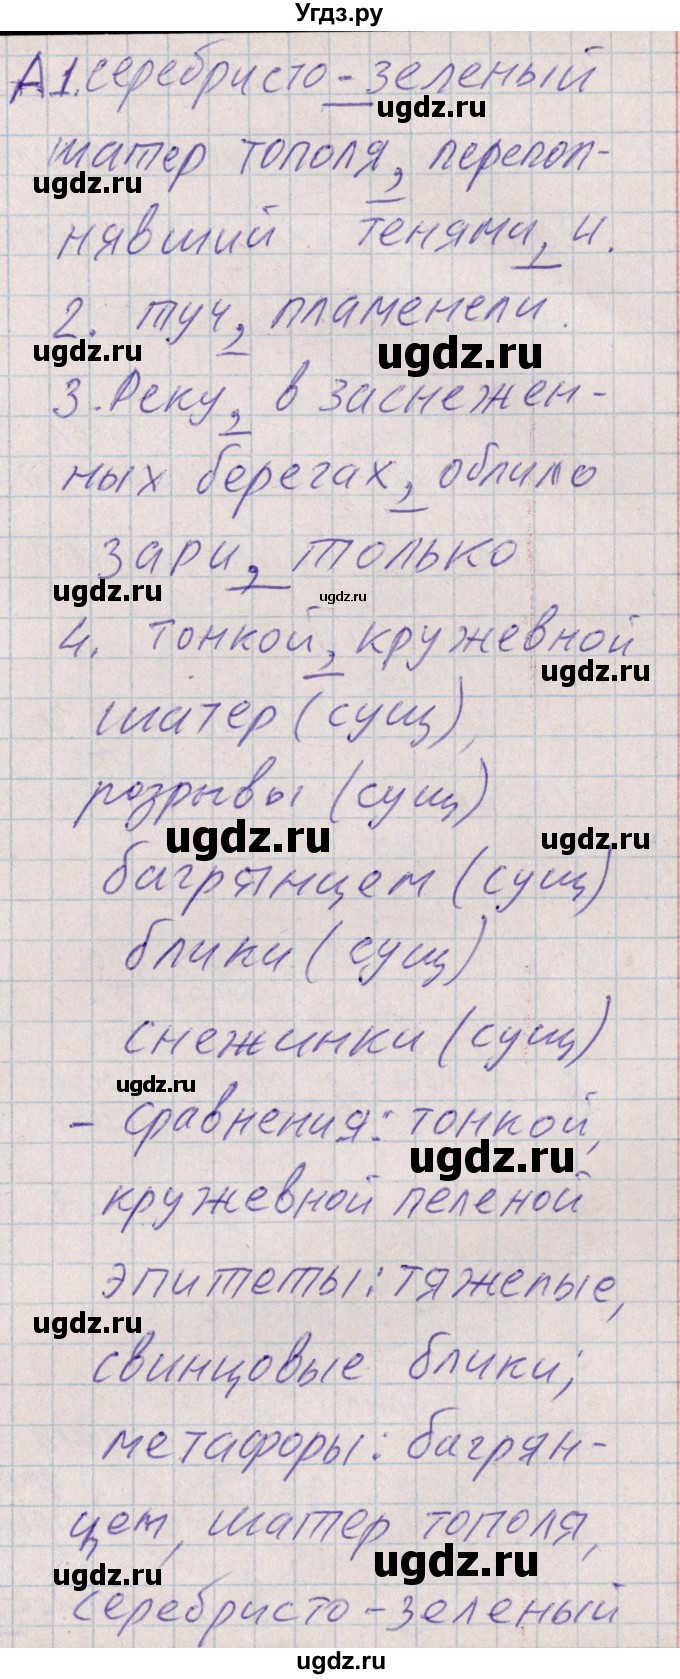 Угдз.ру
А1. серебристо-зеленый
ugdz.ru
шатер тополя, перепол-
ugdz.ru
нявший тенями, и.
2. туч, пламенели.
ugdz.ru ugdz.ru
3. Реку, в заснежен-
ugdz.ru
ных берегах, облило
зари, только
ugdz.ru ugdz.ru
4. тонкой, кружевной
ugdz.ru
шатер (сущ),
розрывы (сущ)
ugdz.ru ugdz.ru
багрянцем (сущ)
блики (сущ)
снежинки (сущ)
ugdz.ru
- сравнения: тонкой,
ugdz.ru
кружевной пеленой
эпитеты: тяжелые,
ugdz.ru
свинцовые блики;
метафоры: багрян-
цем, шатер тополя,
ugdz.ru ugdz.ru
серебристо-зеленый
ugdz.ru